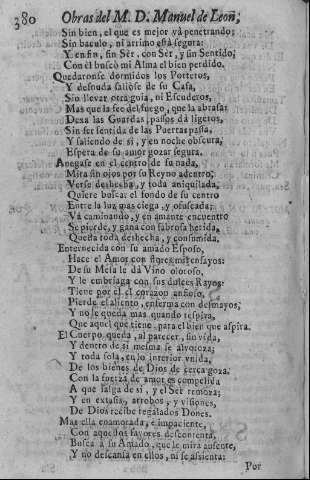 380 Obras del M. D. Manuel de Leon;
Sin bien, el que es mejor yà penetrando;
Sin baculo, ni arrimo està segura:
Y en fin, sin Sèr, con Sèr, y sin Sentido;
Con èl buscò mi Alma el bien perdido.
Quedaronse dormidos los Porteros,
Y desnuda saliòse de su Casa,
Sin llevar otra guia, ni Escuderos,
Mas que la fee del fuego, que la abrasa:
Dexa las Guardas, passos dà ligeros,
Sin ser sentida de las Puertas passa,
Y saliendo de si, y en noche obscura,
Espera de su amor gozar segura.
Anegase en el centro de su nada,
Mira sin ojos por su Reyno adentro;
Verse deshecha, y toda aniquilada;
Quiere buscar el fondo de su centro
Entre la luz mas ciega, y ofuscada;
Và caminando, y en amante encuentro
Se pierde, y gana con sabrosa herida,
Queda toda deshecha, y consumida.
Enternecida con su amado Esposo,
Hace el Amor con flores mil ensayos:
De su Mesa le dà Vino oloroso,
Y le embriaga con sus dulces Rayos:
Tiene por èl el corazon ansioso,
Pierde el aliento, enferma con desmayos;
Y no le queda mas quando respira,
Que aquel que tiene, para el bien que aspira.
El Cuerpo queda, al parecer, sin vida,
Y dentro de si mesma se alvoroza;
Y toda sola, en lo interior vnida,
De los bienes de Dios de cerca goza.
Con la fuerza de amor es compelida
A que salga de si, y el Sèr remoza;
Y en extasis, arrobos, y visiones,
De Dios recibe regalados Dones.
Mas ella enamorada, è impaciente,
Con aquestos favores descontenta,
Busca à su Amado, que le mira ausente,
Y no descansa en ellos, ni se assienta:
Por